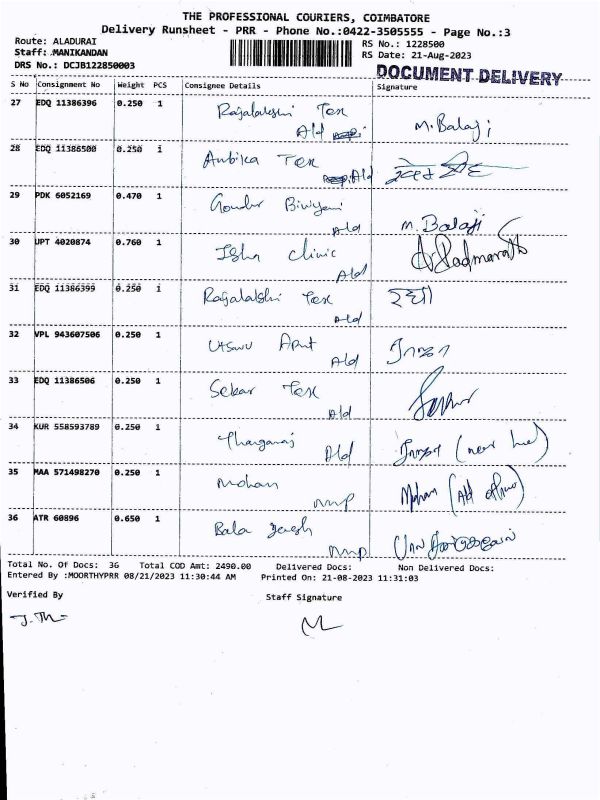 THE PROFESSIONAL COURIERS, COIMBATORE
Delivery Runsheet - PRR - Phone No.:0422-3505555 - Page No.:3
Route: ALADURAI
RS No.: 1228500
Staff: MANIKANDAN
RS Date: 21-Aug-2023
DRS No.: DCJB122850003
DOCUMENT DELIVERY
S No Consignment No Weight PCS Consignee Details Signature
27 EDQ 11386396 0.250 1 Rajalakshi Tex
Ald M. Balaji
28 EDQ 11386500 0.250 1 Ambika Tex
Ald
29 PDK 6052169 0.470 1 Gowder Biriyani
Ald M. Balaji
30 JPT 4020874 0.760 1 Isha Clinic
Ald
31 EDQ 11386399 0.250 1 Rajalakshi Tex
Ald
32 VPL 943607506 0.250 1 Utsav Apmt
Ald
33 EDQ 11386506 0.250 1 Sekar Tex
Ald
34 KUR 558593789 0.250 1 Thangaraj
Ald
35 MAA 571498270 0.250 1 Mohan
Mohan
36 ATR 60896 0.650 1 Bala
Total No. Of Docs: 36 Total COD Amt: 2490.00 Delivered Docs: Non Delivered Docs:
Entered By :MOORTHYPRR 08/21/2023 11:30:44 AM Printed On: 21-08-2023 11:31:03
Verified By
Staff Signature